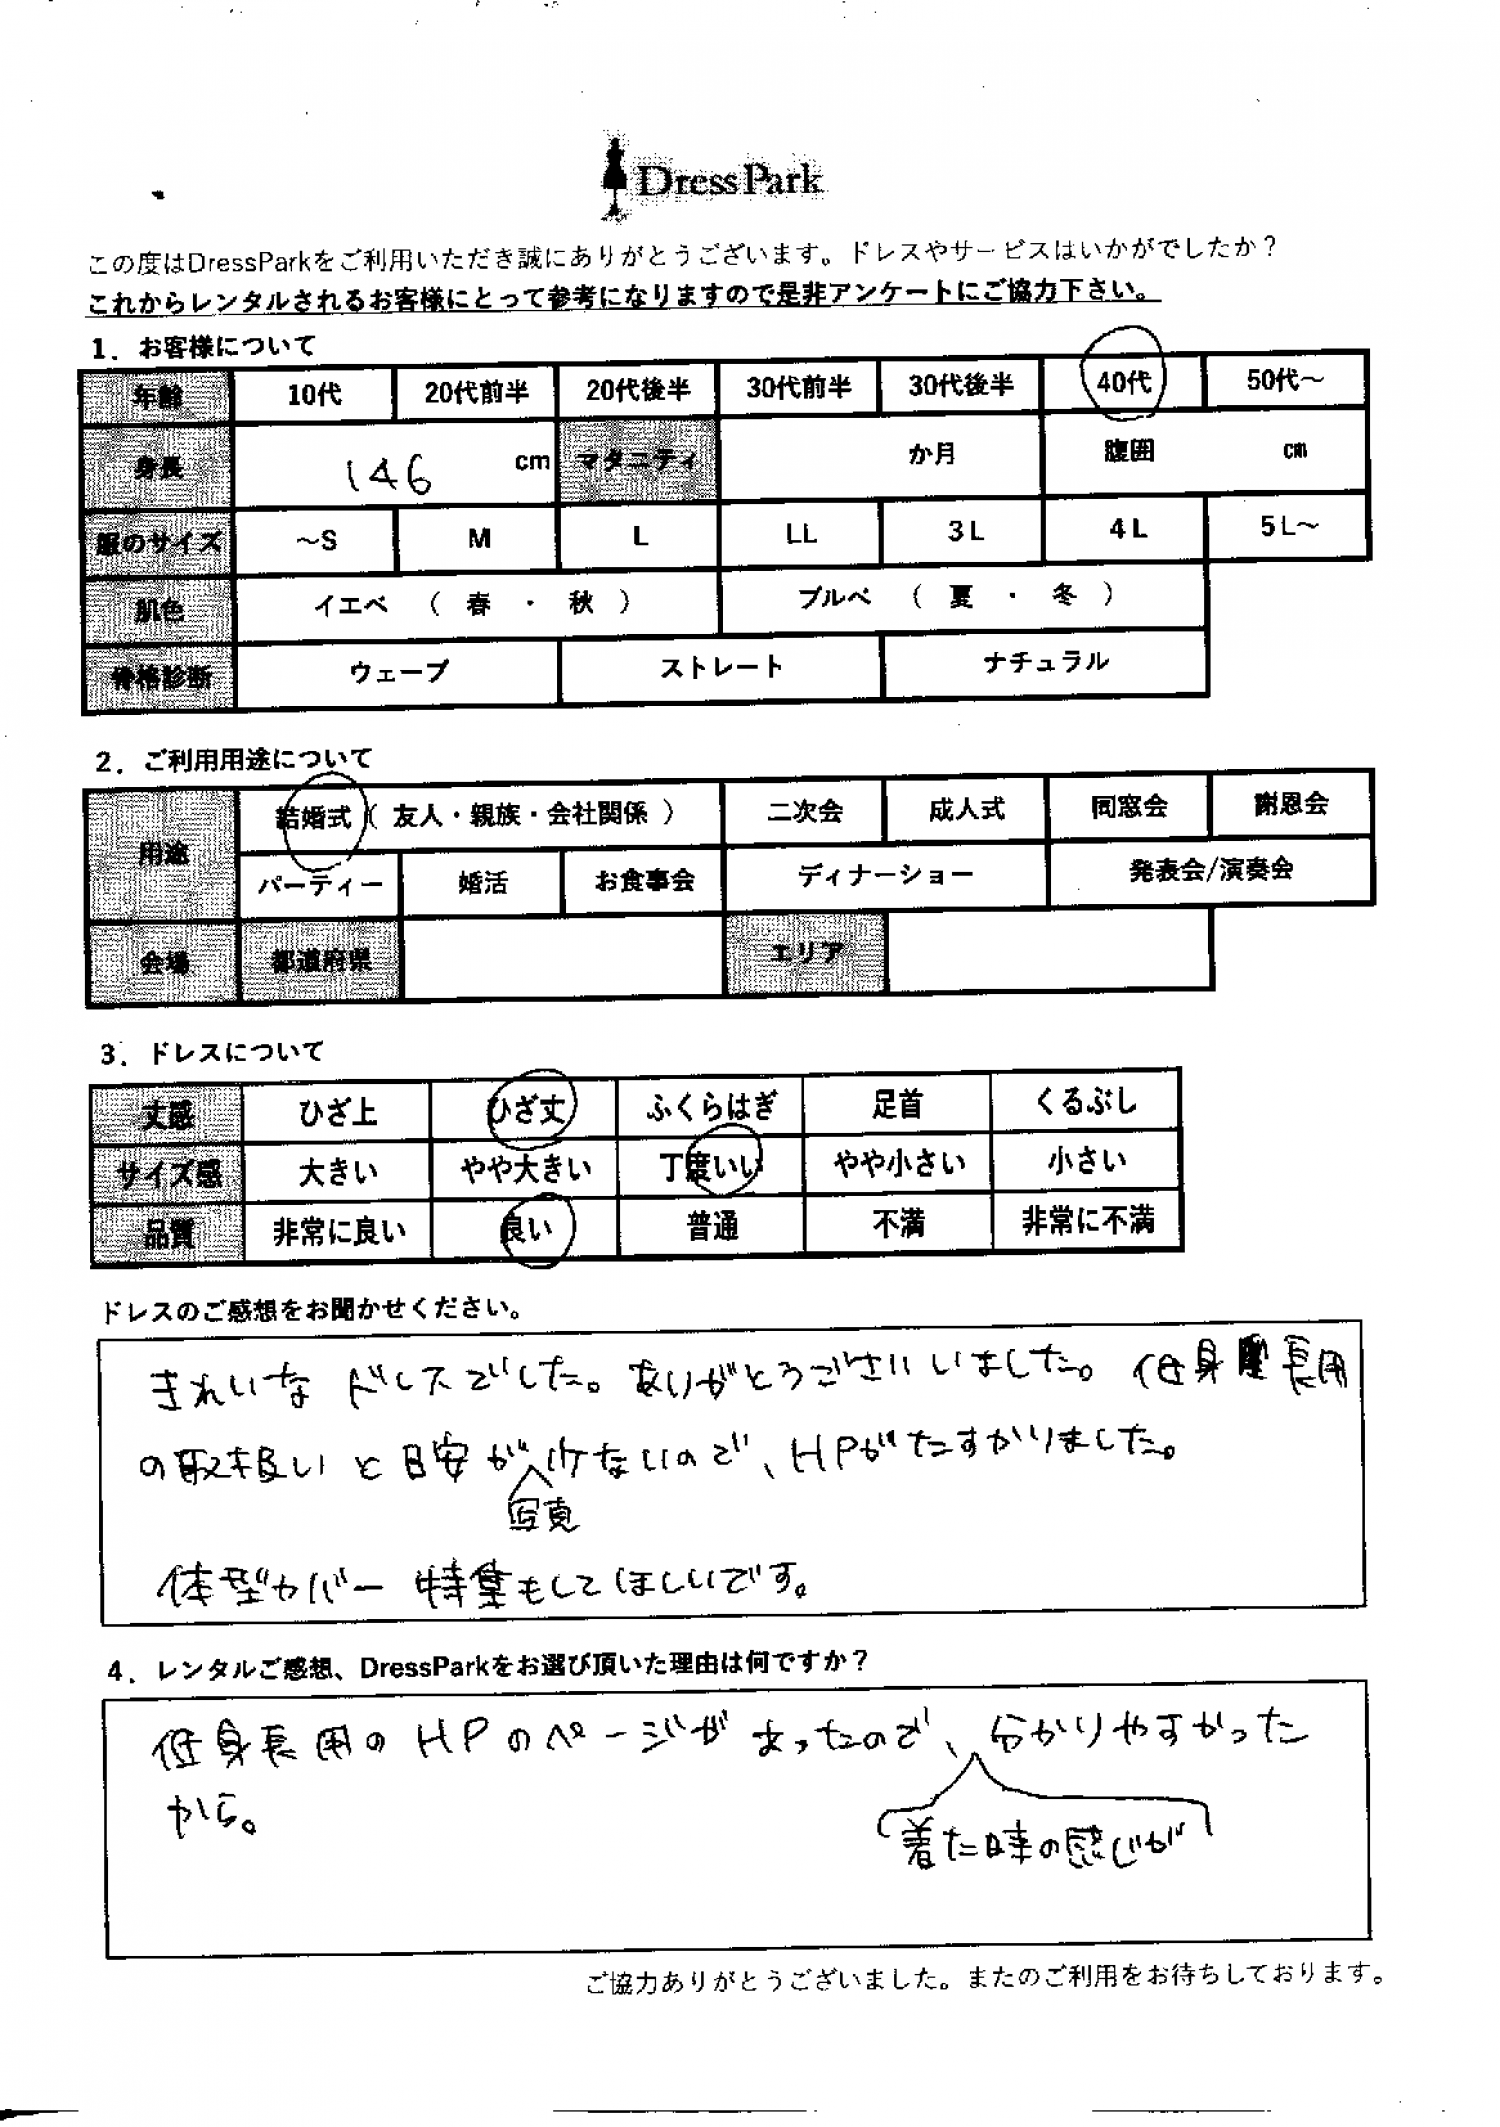 DressPark
この度はDressParkをご利用いただき誠にありがとうございます。ドレスやサービスはいかがでしたか？
これからレンタルされるお客様にとって参考になりますので是非アンケートにご協力下さい。
1．お客様について
年齢 10代 20代前半 20代後半 30代前半 30代後半 40代 50代～
身長 146 cm マタニティ か月 腹囲 cm
服のサイズ ～S M L LL 3L 4L 5L～
肌色 イエベ （ 春 ・ 秋 ） ブルベ （ 夏 ・ 冬 ）
骨格診断 ウェーブ ストレート ナチュラル
2．ご利用用途について
用途 結婚式（ 友人・親族・会社関係 ） 二次会 成人式 同窓会 謝恩会
パーティー 婚活 お食事会 ディナーショー 発表会/演奏会
会場 都道府県 エリア
3．ドレスについて
丈感 ひざ上 ひざ丈 ふくらはぎ 足首 くるぶし
サイズ感 大きい やや大きい 丁度いい やや小さい 小さい
品質 非常に良い 良い 普通 不満 非常に不満
ドレスのご感想をお聞かせください。
きれいなドレスでした。ありがとうございいました。低身長用
の取扱いと目安が少ないので、HPがたすかりました。
写真
体型カバー特集もしてほしいです。
4．レンタルご感想、DressParkをお選び頂いた理由は何ですか？
低身長用のHPのページがあったので、分かりやすかった
から。
着た時の感じが
ご協力ありがとうございました。またのご利用をお待ちしております。